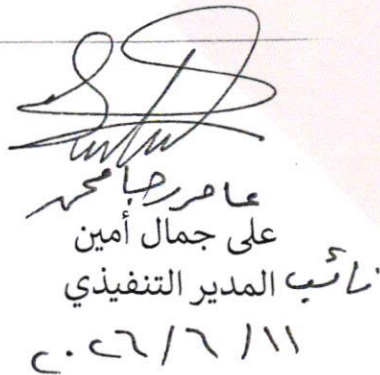 عامر رجا محمد
على جمال أمين
نائب المدير التنفيذي
٢٠٢٦/٦/١١